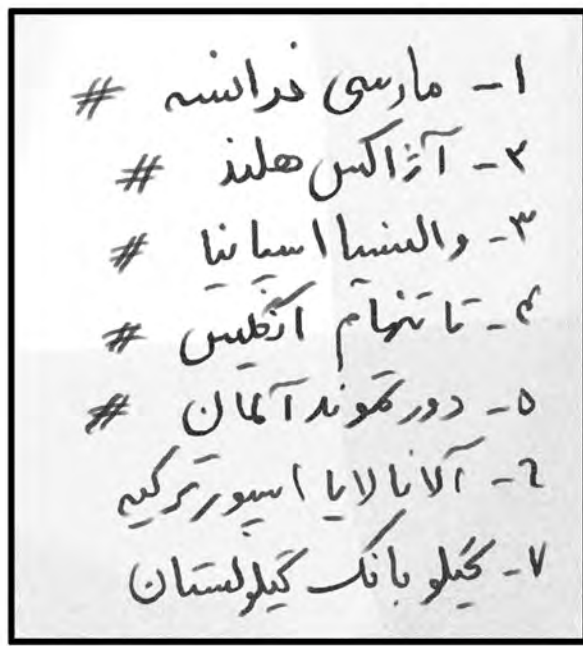 ۱- مارسی فرانسه #
۲- آژاکس هلند #
۳- والنسیا اسپانیا #
۴- تاتنهام انگلیس #
۵- دورتموند آلمان #
۶- آلانالایا اسپورترکیه
۷- گیلو بانک گیلولستان